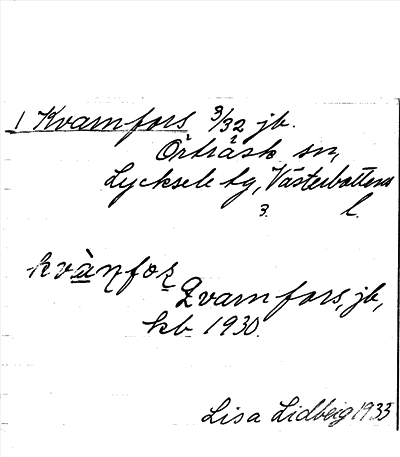 1 Kvarnfors 3/32 jb.
Örträsk sn,
Lycksele tg, Västerbottens
3. l.
kvànfoʐ
Qvarnfors, jb,
kb 1930.
Lisa Lidberg 1933